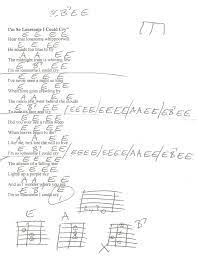 B7 E E
I'm So Lonesome I Could Cry"
E E E E
Hear that lonesome whippoorwill
E E E E
He sounds too blue to fly
A A E E
The midnight train is whining low
E B7 E E
I'm so lonesome I could cry
E E E E
I've never seen a night so long
E E E E
When time goes crawling by
A A E E
The moon just went behind the clouds
E B7 E E
To hide its face and cry
E E E E / E E E E / A A E E / E B7 E E
E E E E
Did you ever see a robin weep
E E E E
When leaves begin to die
A A E E
Like me, he's lost the will to live
E B7 E E
I'm so lonesome I could cry
E E E E / E E E E / A A E E / E B7 E E
E E E E
The silence of a falling star
E E E E
Lights up a purple sky
A A E E
And as I wonder where you are
E B7 E E
I'm so lonesome I could cry
E
A
B7
X